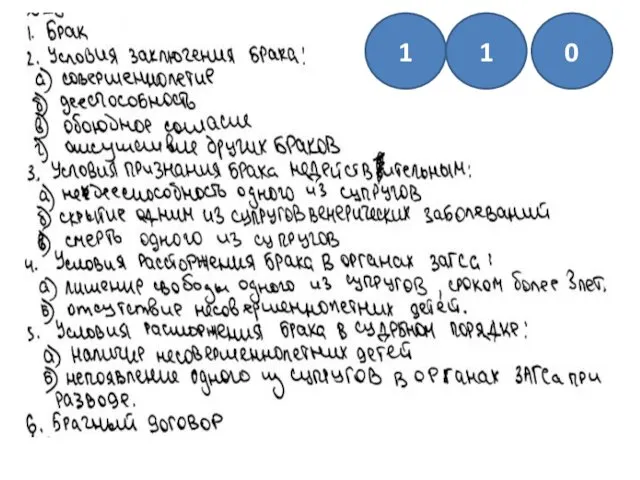 1 1 0
1. Брак
2. Условия заключения брака:
а) совершеннолетие
б) дееспособность
в) обоюдное согласие
г) отсутствие других браков
3. Условия признания брака недействительным:
а) недееспособность одного из супругов
б) скрытие одним из супругов венерических заболеваний
в) смерть одного из супругов
4. Условия расторжения брака в органах загса:
а) лишение свободы одного из супругов, сроком более 3 лет.
б) отсутствие несовершеннолетних детей.
5. Условия расторжения брака в судебном порядке:
а) наличие несовершеннолетних детей
б) непоявление одного из супругов в органах ЗАГСа при
разводе.
6. Брачный договор